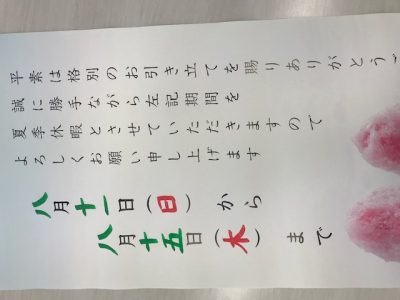 平素は格別のお引き立てを賜りありがとうご
誠に勝手ながら左記期間を
夏季休暇とさせていただきますので
よろしくお願い申し上げます
八月十一日(日)から
八月十五日(木)まで